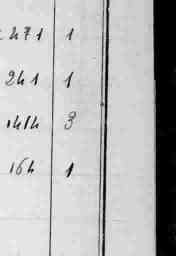 271 1
241 1
1414 3
164 1